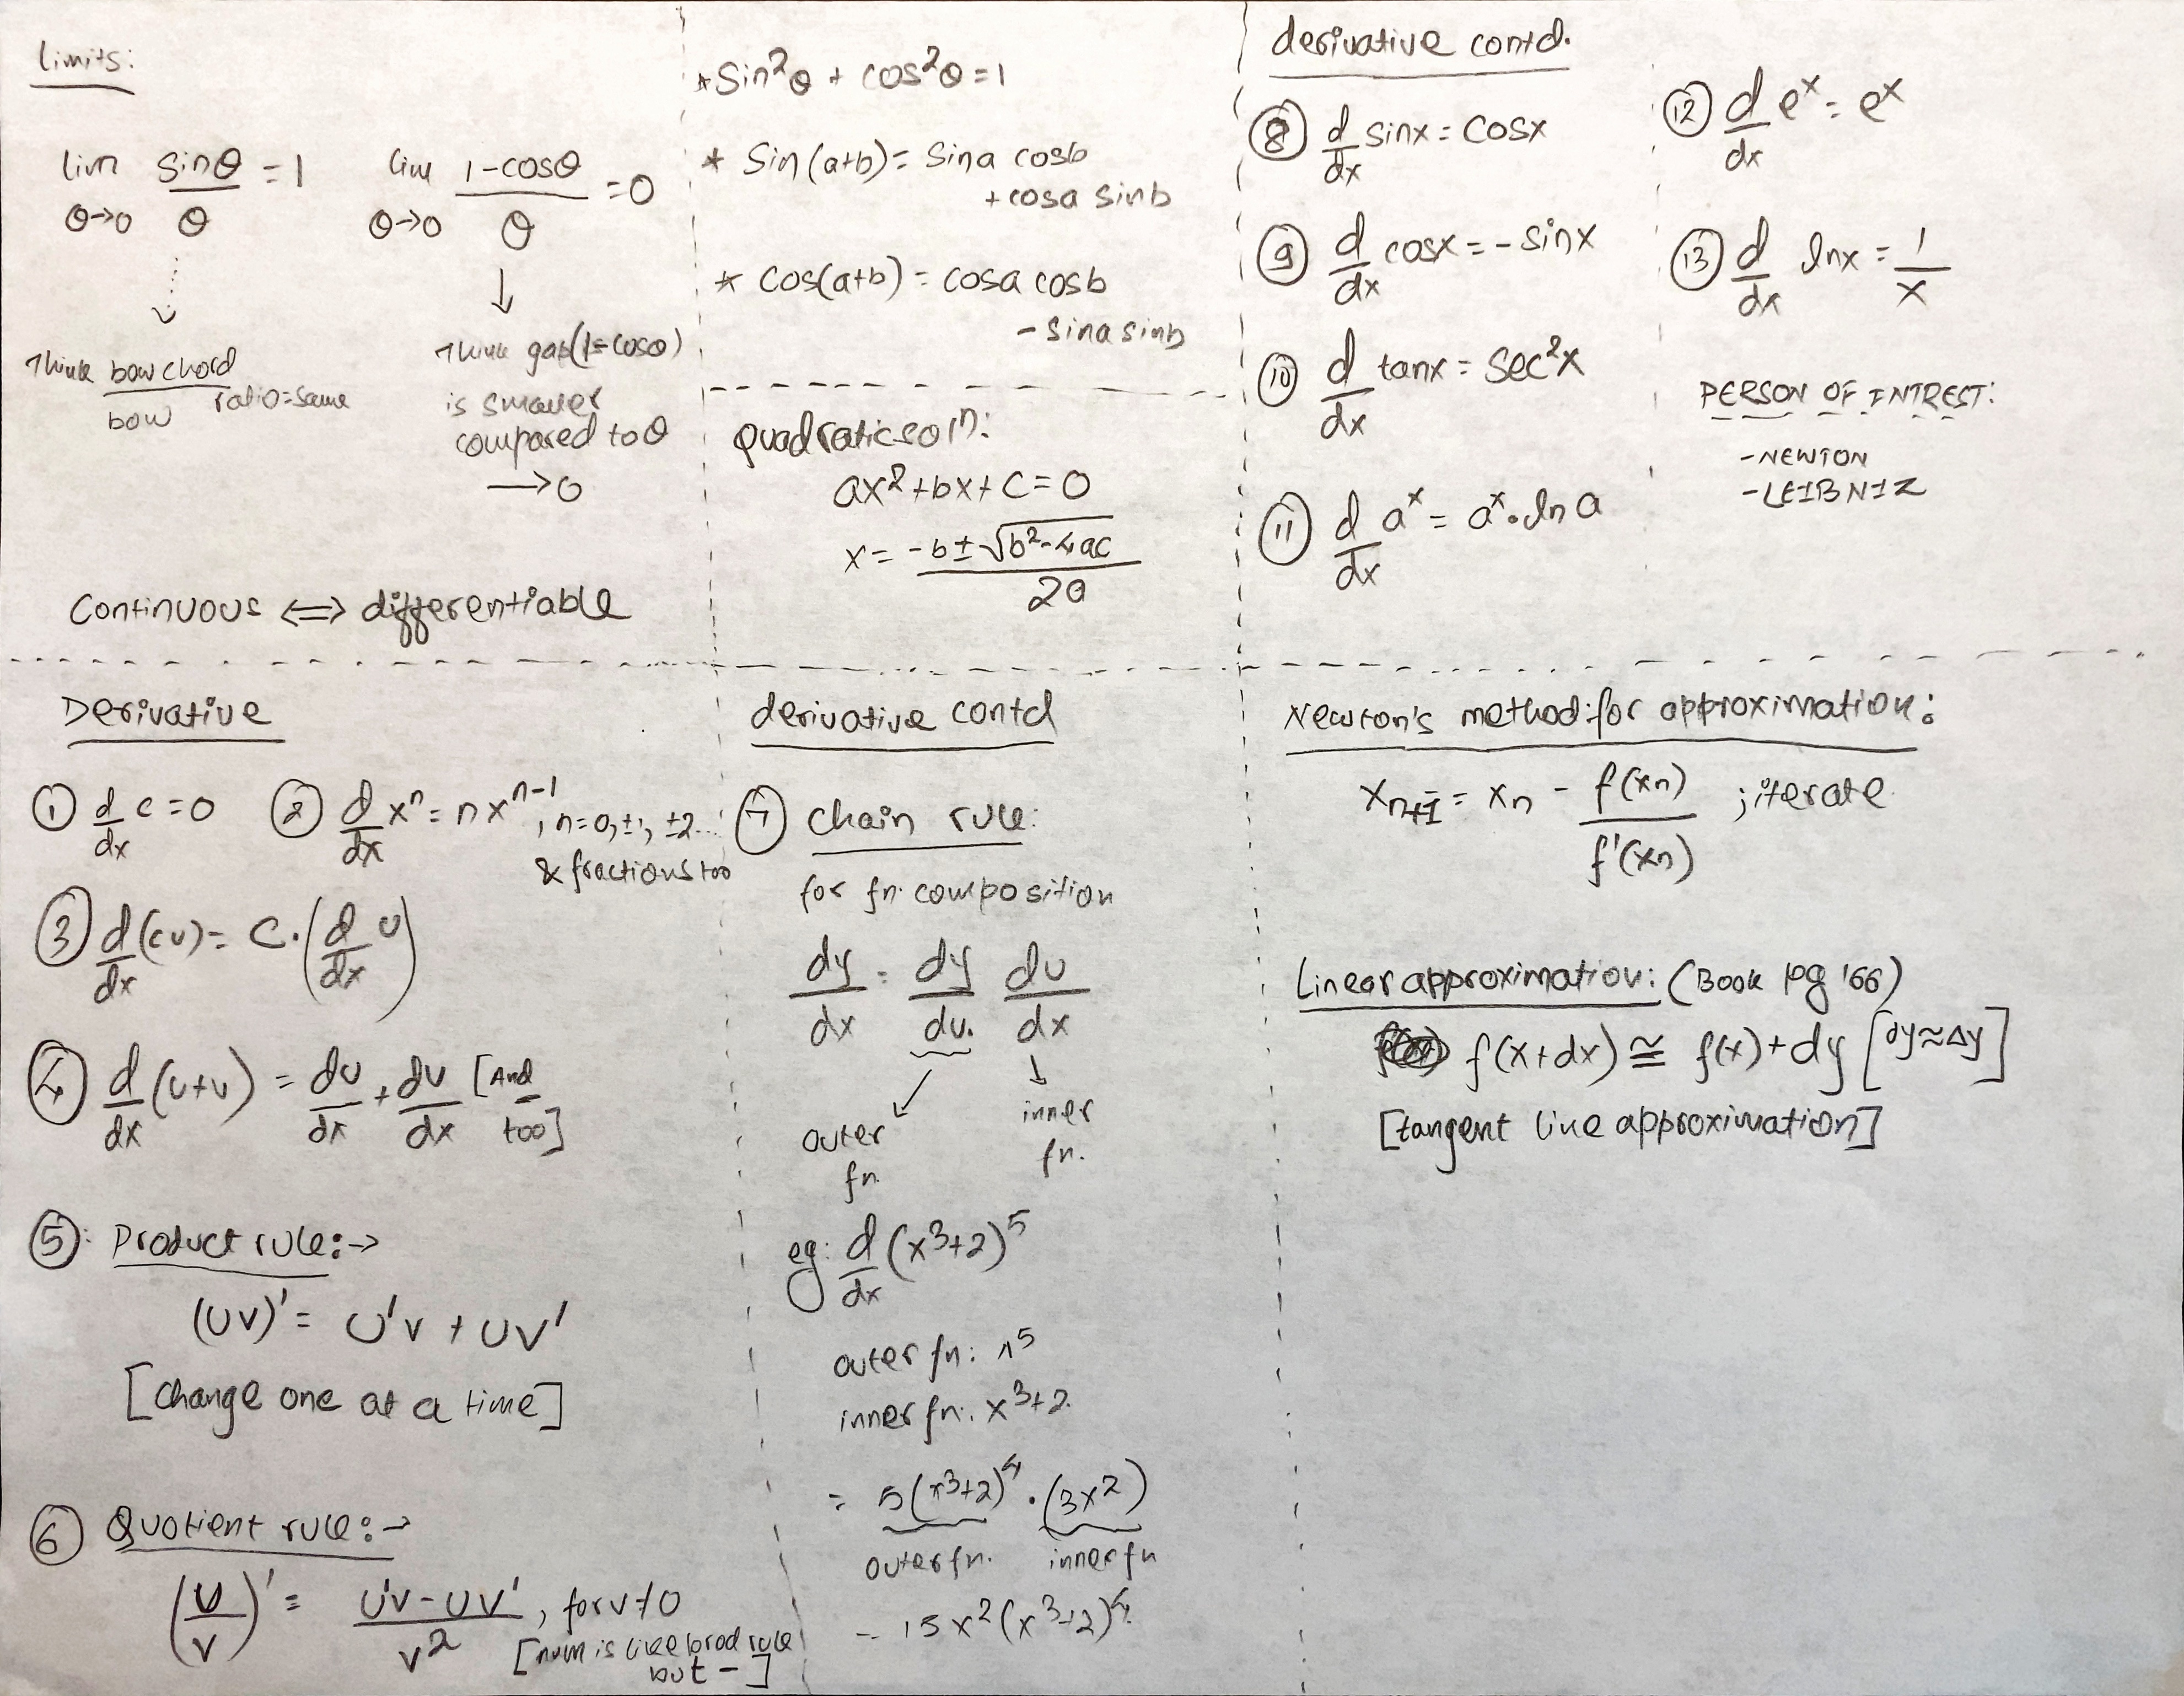 Limits:
lim θ→0 sinθ/θ = 1
lim θ→0 1-cosθ/θ = 0
Think bow chord/bow ratio=same
Think gap(1-cosθ)
is smaller
compared to θ
→0
Continuous ⟺ differentiable
* Sin²θ + cos²θ = 1
* Sin(a+b) = Sina cosb
+ cosa sinb
* Cos(a+b) = cosa cosb
- sina sinb
Quadratic sol'n:
ax²+bx+c=0
x = -b±√(b²-4ac)/2a
derivative contd.
⑧ d/dx sinx = cosx
⑨ d/dx cosx = -sinx
⑩ d/dx tanx = sec²x
⑪ d/dx aˣ = aˣ·ln a
⑫ d/dx eˣ = eˣ
⑬ d/dx lnx = 1/x
PERSON OF INTREST:
-NEWTON
-LEIBNIZ
Derivative
① d/dx c = 0
② d/dx xⁿ = nxⁿ⁻¹, n=0,±1,±2...
& fractions too
③ d/dx (cu) = c·(d/dx u)
④ d/dx (u+v) = du/dx + dv/dx [And
- too]
⑤: Product rule:→
(uv)' = u'v + uv'
[change one at a time]
⑥ Quotient rule:→
(u/v)' = u'v-uv'/v², for v≠0
[num is like prod rule
but -]
derivative contd
⑦ chain rule:
for fn. composition
dy/dx = dy/du . du/dx
outer
fn.
inner
fn.
eg: d/dx (x³+2)⁵
outer fn: x⁵
inner fn: x³+2.
= 5(x³+2)⁴ · (3x²)
outer fn. inner fn
= 15x²(x³+2)⁴.
Newton's method for approximation:
xₙ₊₁ = xₙ - f(xₙ)/f'(xₙ) ; iterate
Linear approximation: (Book pg 166)
f(x+dx) ≅ f(x)+dy [dy≈Δy]
[tangent line approximation]